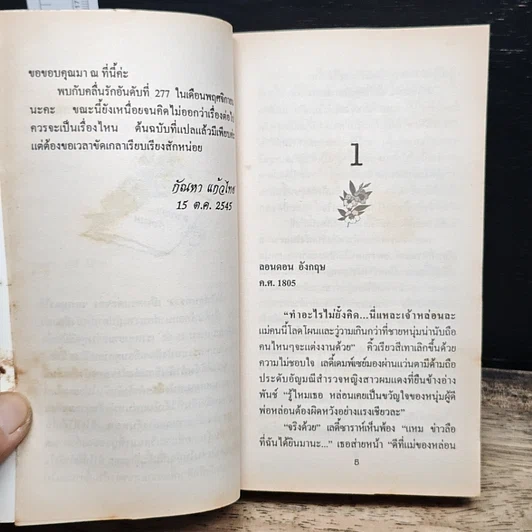 ขอขอบคุณมา ณ ที่นี้ค่ะ
พบกับคลื่นรักอันดับที่ 277 ในเดือนพฤศจิกายน
นะคะ ขณะนี้ยังเหนื่อยจนคิดไม่ออกว่าเรื่องต่อไป
ควรจะเป็นเรื่องไหน ต้นฉบับที่แปลแล้วมีเพียบค่ะ
แต่ต้องขอเวลาขัดเกลาเรียบเรียงสักหน่อย
กัณหา แก้วไทย
15 ต.ค. 2545
1
ลอนดอน อังกฤษ
ค.ศ. 1805
"ทำอะไรไม่ยั้งคิด...นี่แหละเจ้าหล่อนละ
แม่คนนี้โลดโผนและวู่วามเกินกว่าที่ชายหนุ่มน่านับถือ
คนไหนๆจะแต่งงานด้วย" คิ้วเรียวสีเทาเลิกขึ้นด้วย
ความไม่ชอบใจ เลดี้แคมพ์เซย์มองผ่านแว่นตามีด้ามถือ
ประดับอัญมณีสำรวจหญิงสาวผมแดงที่ยืนข้างอ่าง
พันช์ "รู้ไหมเธอ หล่อนเคยเป็นขวัญใจของหนุ่มผู้ดี
พ่อหล่อนต้องผิดหวังอย่างแรงเชียวละ"
"จริงด้วย" เลดี้ซาราห์เห็นพ้อง "แหม ข่าวลือ
ที่ฉันได้ยินมานะ..." เธอส่ายหน้า "ดีที่แม่ของหล่อน
5